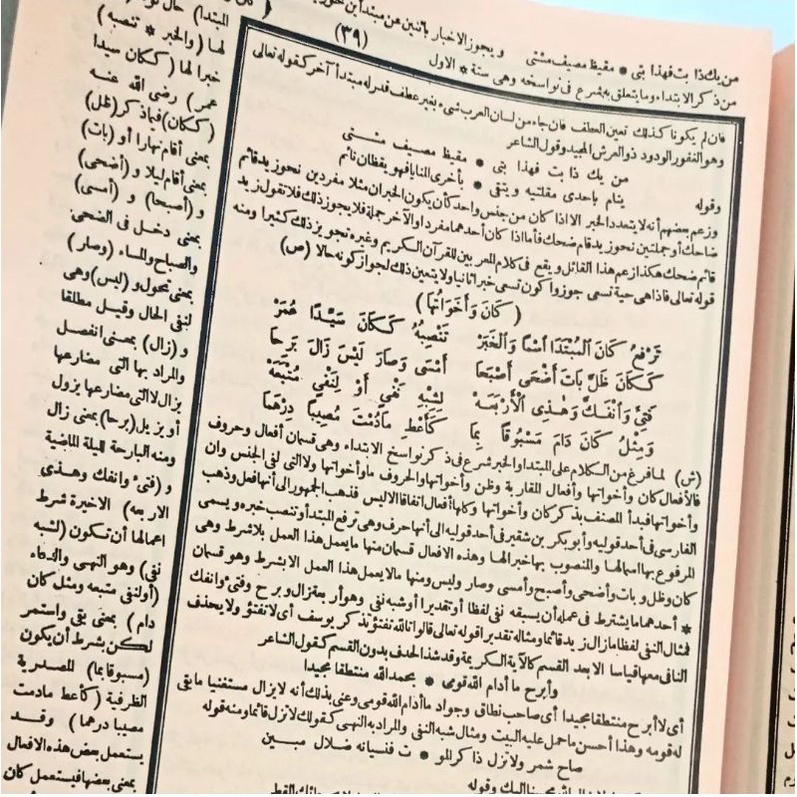 (٣٩)
ويجوز الاخبار باثنين عن مبتدا
من يك ذا بت فهذا بتى * مقيظ مصيف مشتى
من ذكر الابتداء وما يتعلق به شرع فى نواسخه وهى ستة * الاول
فان لم يكونا كذلك تعين العطف فان جاء من لسان العرب شىء بغير عطف قدر له مبتدأ آخر كقوله تعالى
وهو الغفور الودود ذو العرش المجيد وقول الشاعر
من يك ذا بت فهذا بتى * مقيظ مصيف مشتى
وقوله ينام باحدى مقلتيه ويتقى * بأخرى المنايا فهو يقظان نائم
وزعم بعضهم أنه لا يتعدد الخبر الا اذا كان من جنس واحد كأن يكون الخبران مثلا مفردين نحو زيد قائم
ضاحك أو جملتين نحو زيد قام ضحك فأما اذا كان أحدهما مفردا والآخر جملة فلا يجوز ذلك فلا تقول زيد
قائم ضحك هكذا زعم هذا القائل ويقع فى كلام المعربين للقرآن الكريم وغيره تجويز ذلك كثيرا ومنه
قوله تعالى فاذا هى حية تسعى جوزوا كون تسعى خبرا ثانيا ولا يتعين ذلك لجواز كونه حالا (ص)
(كَانَ وَأَخَوَاتُهَا)
تَرْفَعُ كَانَ الْمُبْتَدَا اسْمًا وَالْخَبَرْ تَنْصِبُهُ كَكَانَ سَيِّدًا عُمَرْ
كَكَانَ ظَلَّ بَاتَ أَضْحَى أَصْبَحَا أَمْسَى وَصَارَ لَيْسَ زَالَ بَرِحَا
فَتِئَ وَانْفَكَّ وَهَذِى الْأَرْبَعَهْ لِشِبْهِ نَفْىٍ أَوْ لِنَفْىٍ مُتْبَعَهْ
وَمِثْلُ كَانَ دَامَ مَسْبُوقًا بِمَا كَأَعْطِ مَا دُمْتَ مُصِيبًا دِرْهَمَا
(ش) لما فرغ من الكلام على المبتدا والخبر شرع فى ذكر نواسخ الابتداء وهى قسمان أفعال وحروف
فالأفعال كان وأخواتها وأفعال المقاربة وظن وأخواتها والحروف ما وأخواتها ولا التى لنفى الجنس وان
وأخواتها فبدأ المصنف بذكر كان وأخواتها وكلها أفعال اتفاقا الا ليس فذهب الجمهور الى أنها فعل وذهب
الفارسى فى أحد قوليه وأبو بكر بن شقير فى أحد قوليه الى أنها حرف وهى ترفع المبتدأ وتنصب خبره ويسمى
المرفوع بها اسما لها والمنصوب بها خبرا لها وهذه الافعال قسمان منها ما يعمل هذا العمل بلا شرط وهى
كان وظل وبات وأضحى وأصبح وأمسى وصار وليس ومنها ما لا يعمل هذا العمل الا بشرط وهو قسمان
* أحدهما ما يشترط فى عمله أن يسبقه نفى لفظا أو تقديرا أو شبه نفى وهو أربعة زال وبرح وفتئ وانفك
فمثال النفى لفظا ما زال زيد قائما ومثاله تقديرا قوله تعالى قالوا تالله تفتؤ تذكر يوسف أى لا تفتؤ ولا يحذف
النافى معها قياسا الا بعد القسم كالآية الكريمة وقد شذ الحذف بدون القسم كقول الشاعر
وأبرح ما أدام الله قومى * بحمد الله منتطقا مجيدا
أى لا أبرح منتطقا مجيدا أى صاحب نطاق وجواد ما أدام الله قومى وعنى بذلك أنه لا يزال مستغنيا ما بقى
له قومه وهذا أحسن ما حمل عليه البيت ومثال شبه النفى والمراد به النهى كقولك لا تزل قائما ومنه قوله
صاح شمر ولا تزل ذاكر المو * ت فنسيانه ضلال مبين
المبتدا) حال
لها (والخبر * تنصبه)
خبرا لها (ككان سيدا
عمر) رضى الله عنه
(ككان) فيما ذكر (ظل)
بمعنى أقام نهارا أو (بات)
بمعنى أقام ليلا و(أضحى)
و(أصبحا) و(أمسى)
بمعنى دخل فى الضحى
والصباح والمساء (وصار)
بمعنى تحول و(ليس) وهى
لنفى الحال وقيل مطلقا
و(زال) بمعنى انفصل
والمراد بها التى مضارعها
يزال لا التى مضارعها يزول
أو يزيل (برحا) بمعنى زال
ومنه البارحة لليلة الماضية
و(فتئ وانفك وهذى
الاربعه) الاخيرة شرط
اعمالها أن تكون (لشبه
نفى) وهو النهى والدعاء
(أو لنفى متبعه ومثل كان
دام) بمعنى بقى واستمر
لكن بشرط أن يكون
(مسبوقا بما) المصدرية
الظرفية (كأعط مادمت
مصيبا درهما) وقد
يستعمل بعض هذه الافعال
بمعنى بعضها فيستعمل كان